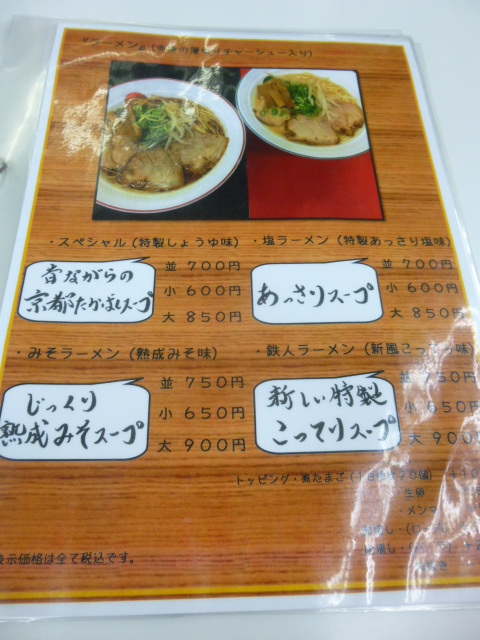 ラーメン
チャーシュー入り)
・スペシャル (特製しょうゆ味)
並 700円
小 600円
大 850円
昔ながらの
京都たかばしスープ
・塩ラーメン (特製あっさり塩味)
並 700円
小 600円
大 850円
あっさりスープ
・みそラーメン (熟成みそ味)
並 750円
小 650円
大 900円
じっくり
熟成みそスープ
・鉄人ラーメン (新風こってり味)
並 750円
小 650円
大 900円
新しい特製
こってりスープ
トッピング・煮たまご
生卵
・メンマ
表示価格は全て税込です。